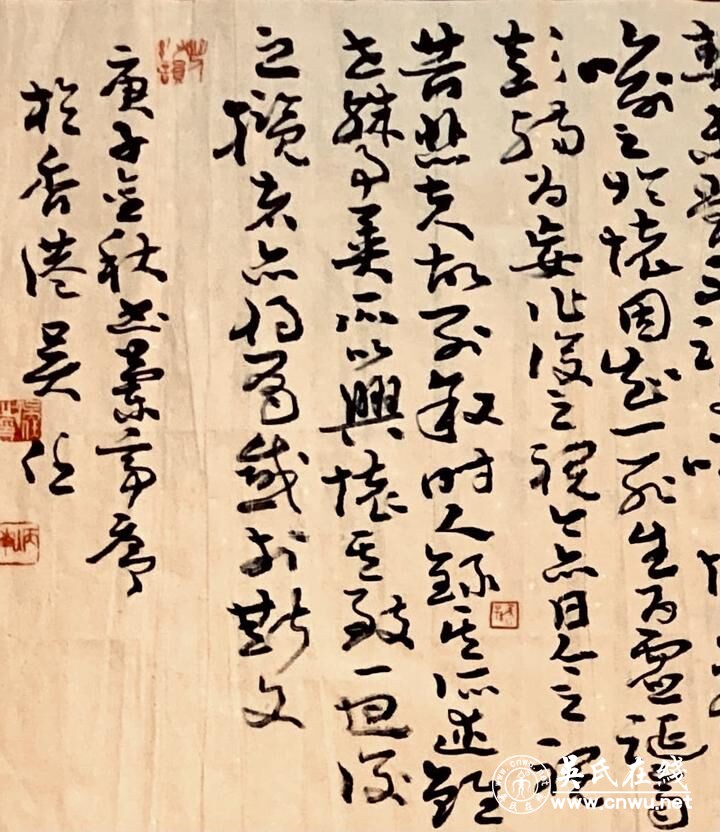 喻之於懷固知一死生為虛誕齊
彭殤為妄作後之視今亦由今之視
昔悲夫故列敘時人錄其所述雖
世殊事異所以興懷其致一也後
之攬者亦將有感於斯文
庚子金秋書蘭亭序
於香港吳任
吴氏在线
www.cnwu.net